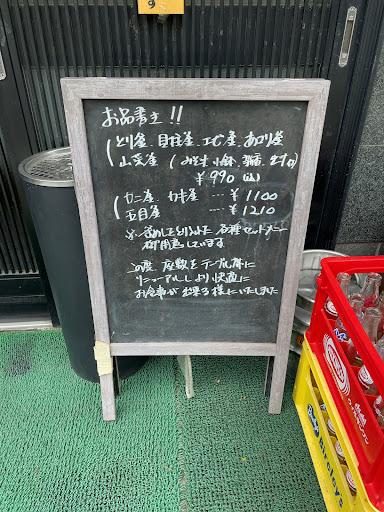 9
お品書き!!
とり釜、貝柱釜、エビ釜、あさり釜
山菜釜
¥990
カニ釜 カキ釜 … ¥1100
五目釜 … ¥1210
釜めしをとり入れた各種セットメニュー
御用意しています
この度 座敷をテーブル席に
リニューアルし より快適に
お食事が出来る様にいたしました